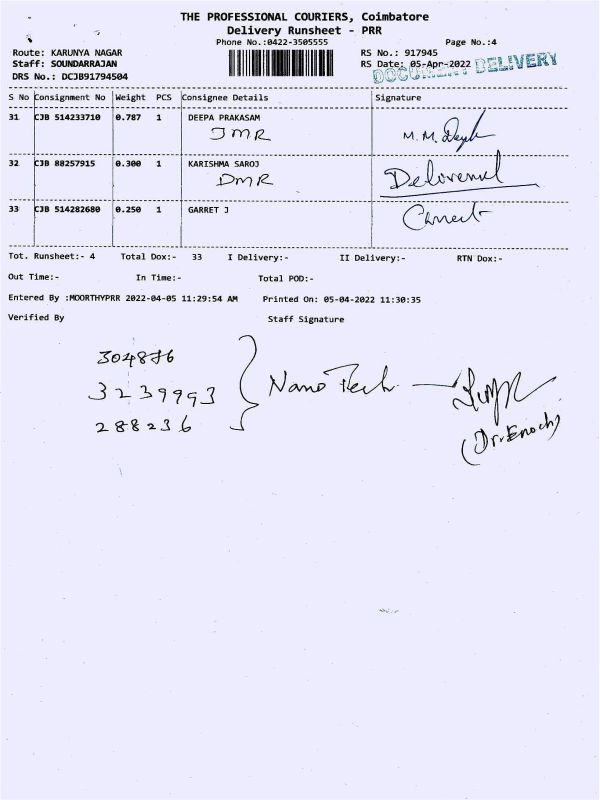 THE PROFESSIONAL COURIERS, Coimbatore
Delivery Runsheet - PRR
Phone No.:0422-3505555 Page No.:4
Route: KARUNYA NAGAR RS No.: 917945
Staff: SOUNDARRAJAN RS Date: 05-Apr-2022
DRS No.: DCJB91794504 DOCUMENT DELIVERY
S No Consignment No Weight PCS Consignee Details Signature
31 CJB 514233710 0.787 1 DEEPA PRAKASAM
JMR M.M.
32 CJB 88257915 0.300 1 KARISHMA SAROJ
DMR
33 CJB 514282680 0.250 1 GARRET J
Tot. Runsheet:- 4 Total Dox:- 33 I Delivery:- II Delivery:- RTN Dox:-
Out Time:- In Time:- Total POD:-
Entered By :MOORTHYPRR 2022-04-05 11:29:54 AM Printed On: 05-04-2022 11:30:35
Verified By Staff Signature
304876
3239993 Nano Tech
288236
(Dr. Enoch)